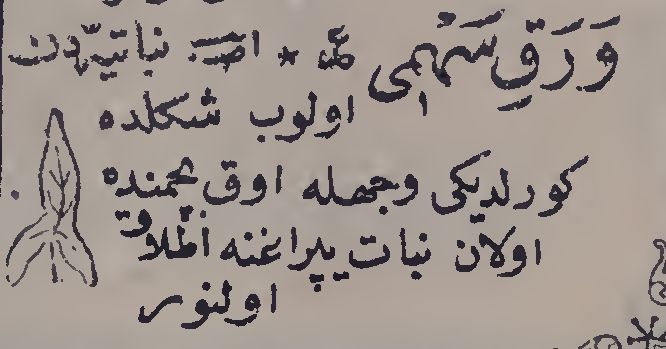 وَرَقِ سَهْمِى * نباتیه‌دن
اولوب شكلده
كورلدیكى وجهله اوق بچمنده
اولان نبات یپراغنه اطلاق
اولنور